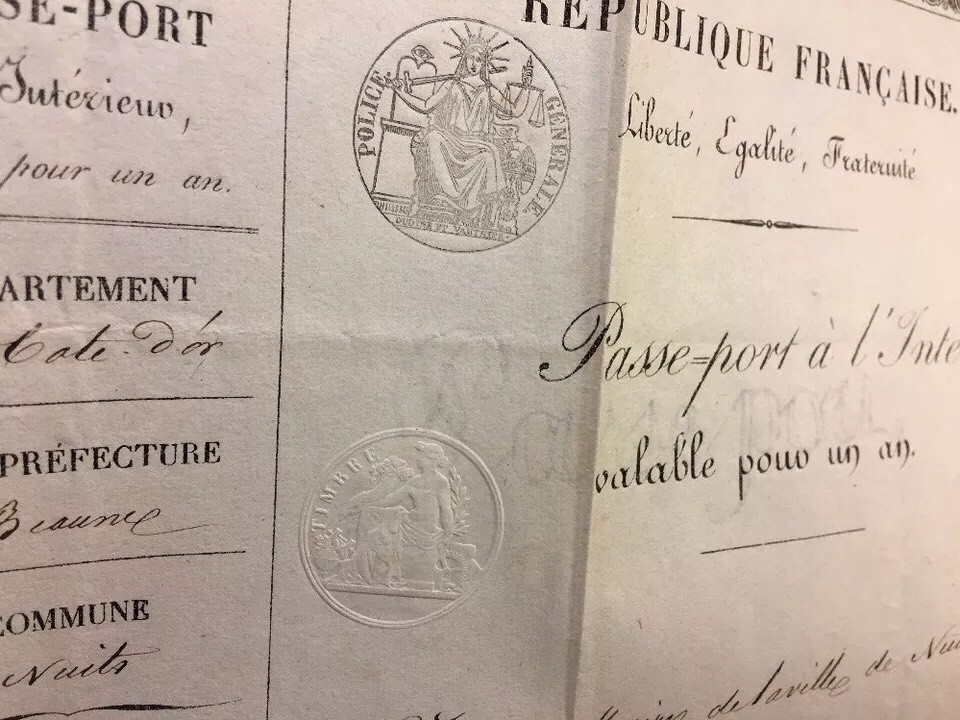 SE-PORT
Intérieur,
pour un an.
ARTEMENT
Cote-d'or
PRÉFECTURE
Beaune
COMMUNE
Nuits
POLICE GÉNÉRALE.
TIMBRE
RÉPUBLIQUE FRANÇAISE.
Liberté, Egalité, Fraternité
Passe=port à l'Inte
valable pour un an.
de la ville de Nui